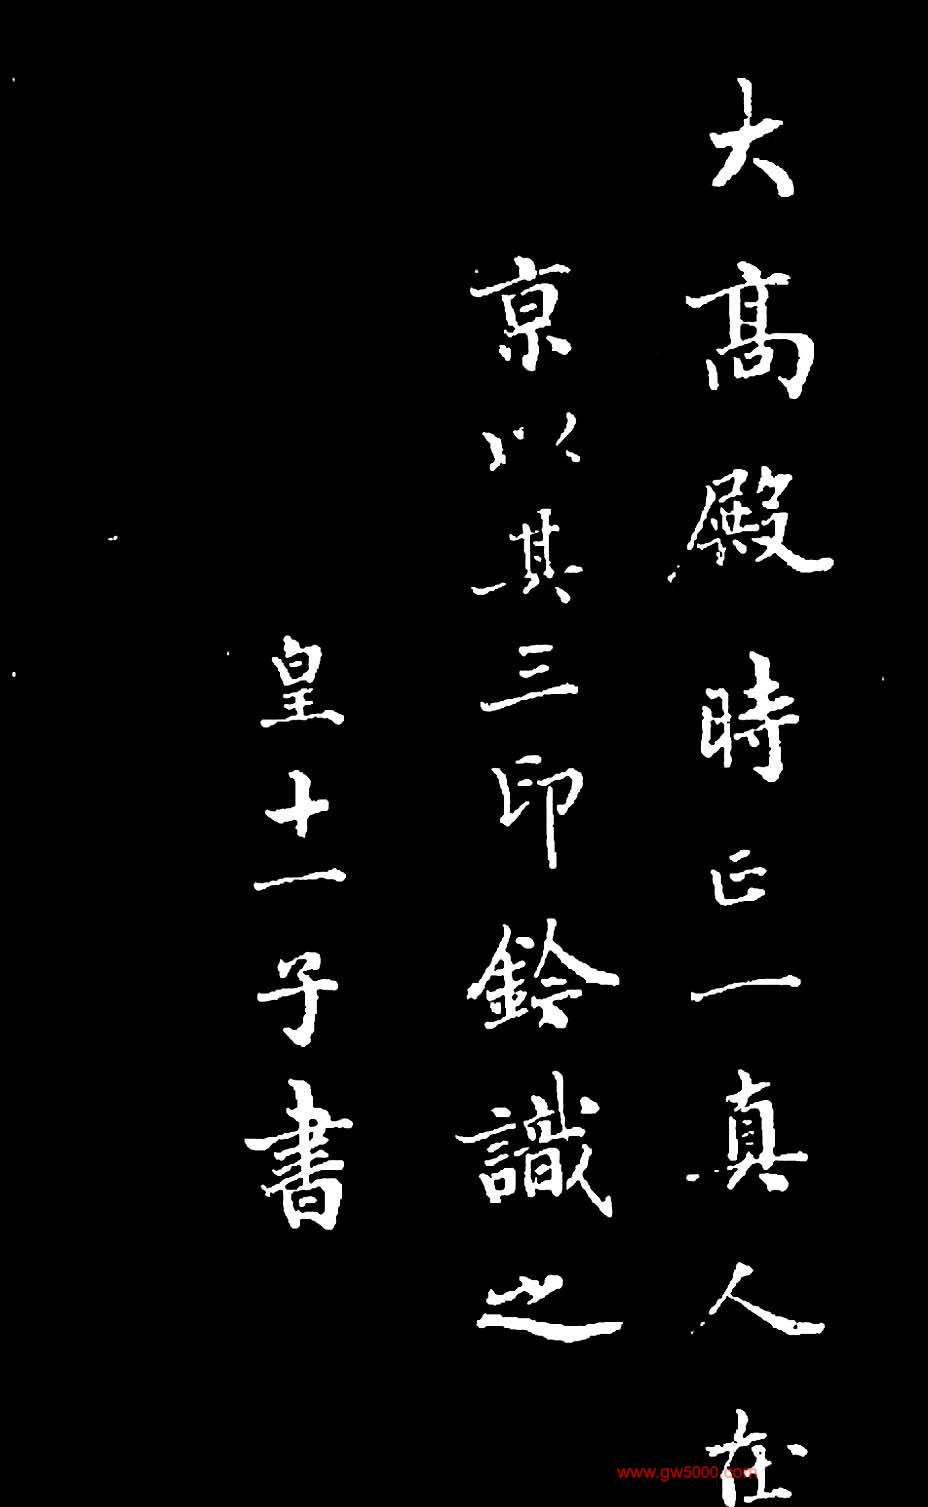 大高殿時正一真人在
京以其三印鈐識之
皇十一子書
www.gw5000.com